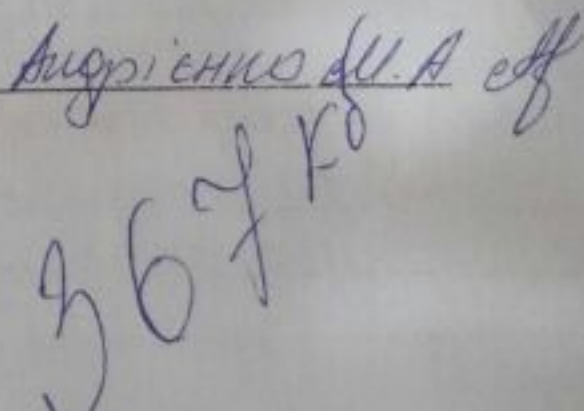 Андрієнко М.А
367 кг